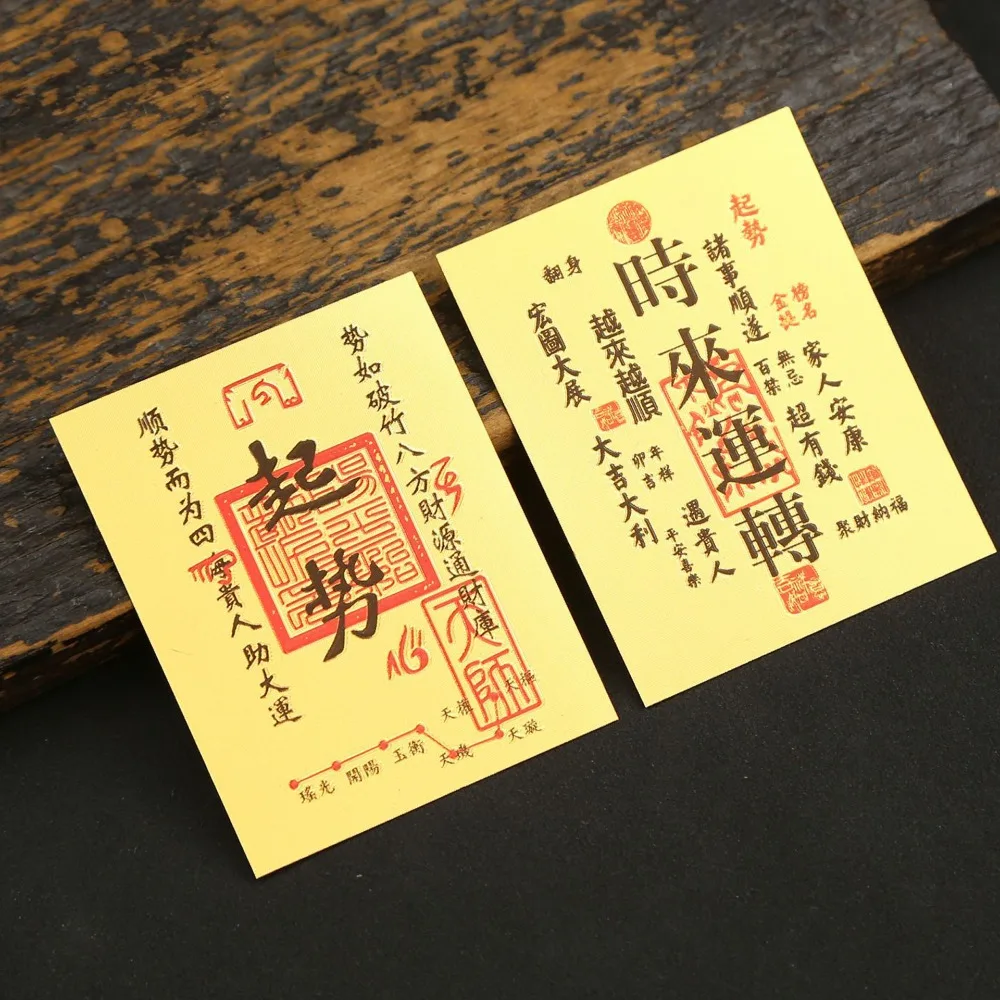 势如破竹八方財源通財庫
起势
顺势而为四海貴人助大運
天師
天樞
天權
天璇
天機
玉衡
開陽
瑤光
起勢
榜名
金提
家人安康
聚財納福
諸事順遂
無忌
百禁
超有錢
時來運轉
遇貴人
翻身
越來越順
年祥
卯吉
平安喜樂
宏圖大展
大吉大利